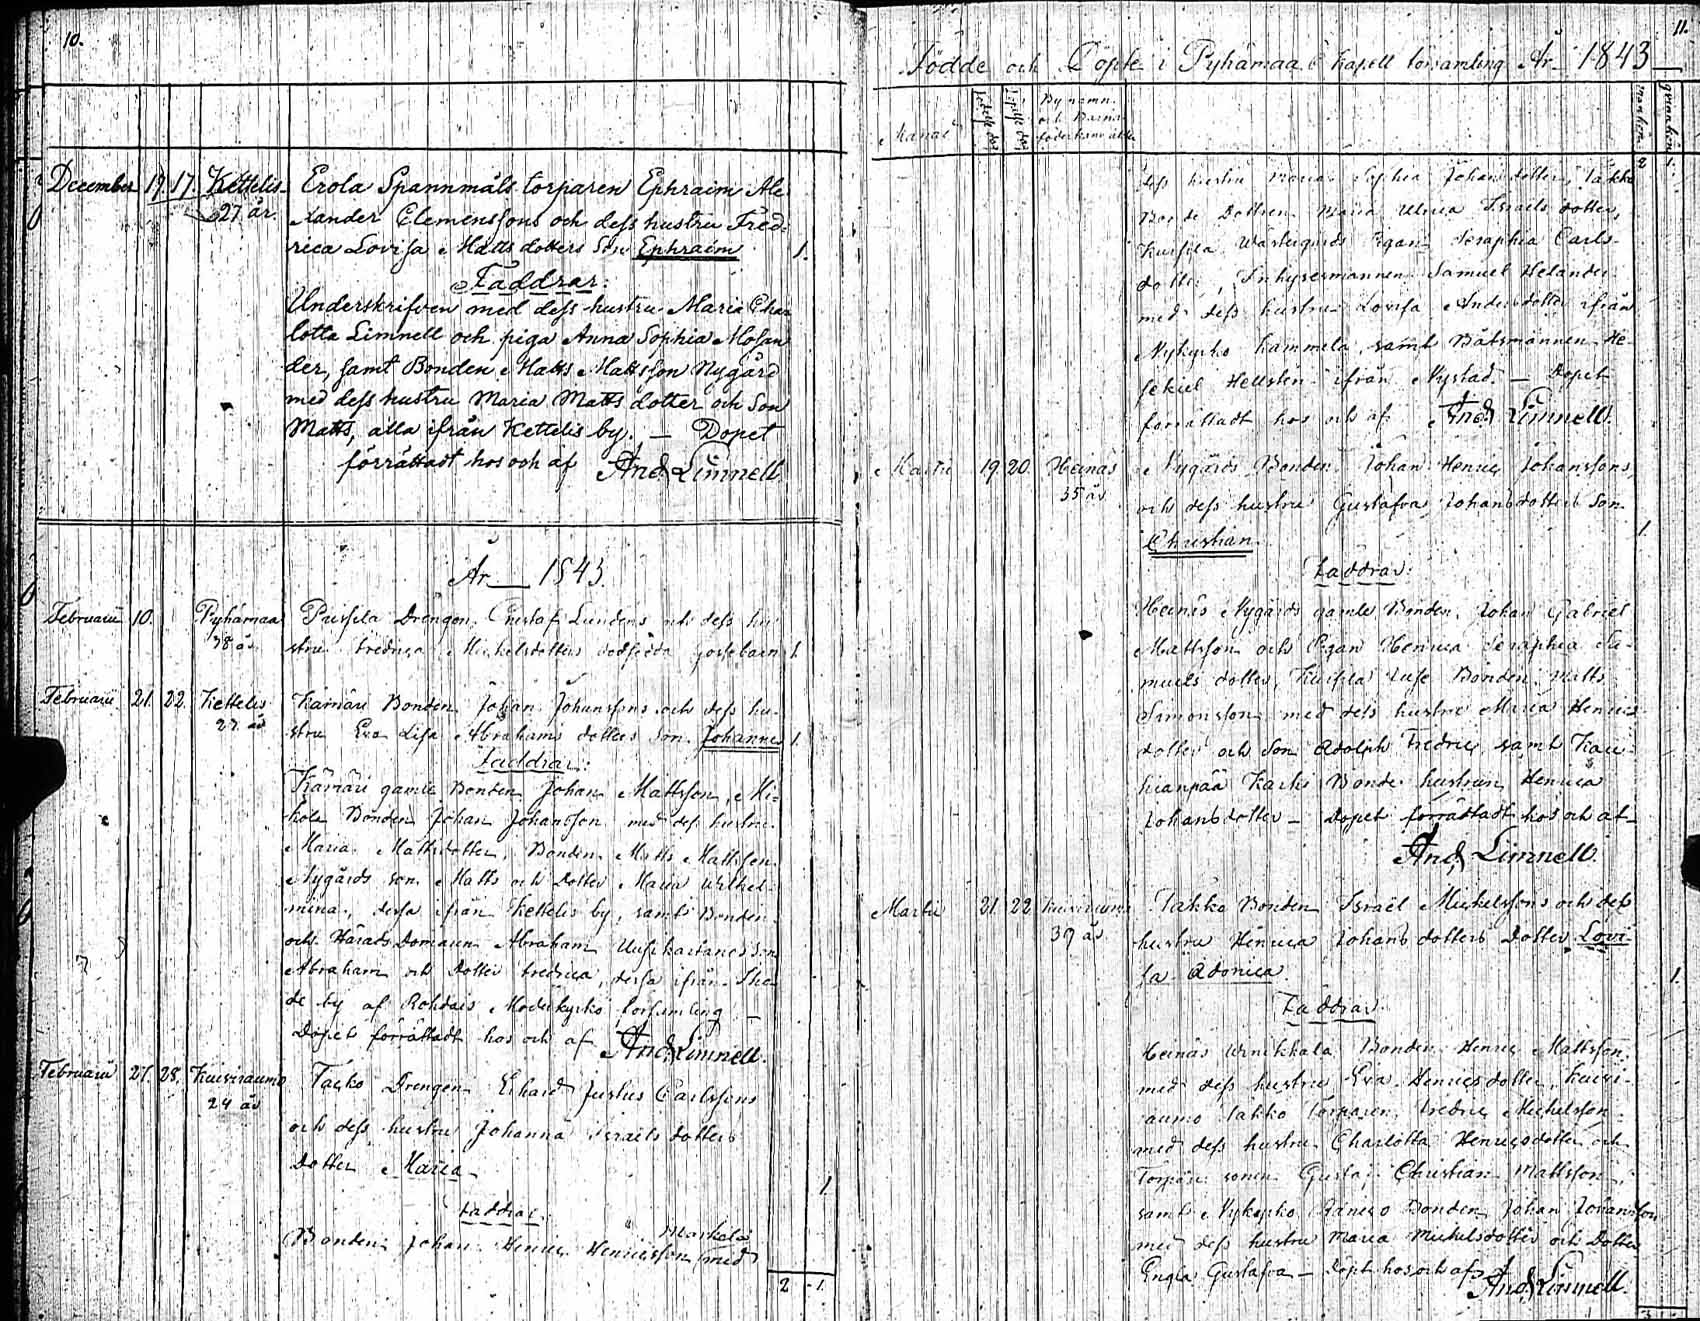 10.
December 17. 17. Kettelis Erola Spannmåls torparen Ephraim Ale-
27 år. xander Clemenssons och dess hustru Fred-
rica Lovisa Matts dotters Son Ephraim 1.
Faddrar:
Underskrifven med dess hustru Maria Char
lotta Limnell och piga Anna Sophia Mosan
der, samt Bonden Matts Mattsson Nygård
med dess hustru Maria Matts dotter och Son
Matts, alla ifrån Kettelis by. — Dopet
förrättadt hos och af And. Limnell
År 1843.
Februarii 10. Pyhämaa Drengen Gustaf Lundens och dess hu
38 år stru Fredrica Michelsdotters dödfödda gossebarn 1.
Februarii 21. 22. Kettelis Kämäri Bonden Johan Johanssons och dess hu-
27 år stru Eva Lisa Abrahams dotters Son Johannes 1.
Faddrar:
Kämäri gamle Bonden Johan Mattsson, Mi-
kola Bonden Johan Johansson med dess hustru
Maria Mattsdotter, Bonden Matts Mattsson
Nygårds son Matts och Dotter Maria Wilhel-
mina, dessa ifrån Kettelis by, samt Bonden
och Härads Domaren Abraham Uusikartanos Son
Abraham och Dotter Fredrica, dessa ifrån
de by af Rohdais Moderkyrko församling —
Dopet förrättadt hos och af And. Limnell.
Februarii 27. 28. Kuivraumo Tacko Drengen Erhard Justus Carlssons
24 år
och dess hustru Johanna Israels dotters
Dotter Maria 1.
Faddrar:
Markala
Bonden Johan Henric Henricsson med
2 1.
11.
Födde och Döpte i Pyhämaa Capell församling År 1843
Månad Födelse dag Döpelse dag Bynamn
och Barna-
föderskans ålder Mankön Qvinkön
2 1.
dess hustru Maria Sophia Johans dotter, Takko
Bonde Dottren Maria Ulrica Israels dotter,
Kursila Wästergårds Pigan Seraphia Carls-
dotter, Inhysesmannen Samuel Helander
med dess hustru Lovisa Anders dotter ifrån
Nykyrko Kammela, samt Båtsmannen He-
sekiel Hellsten ifrån Nystad — Dopet
förrättadt hos och af And. Limnell.
Martii 19. 20. Heinäs Nygårds Bonden Johan Henric Johanssons
35 år
och dess hustru Gustafva Johans dotters Son
Christian 1.
Faddrar:
Heinäs Nygårds gamle Bonden Johan Gabriel
Mattsson och Pigan Henrica Seraphia Sa-
muels dotter, Kursila Uuse Bonden Matts
Simonsson med dess hustru Maria Henrics
dotter och Son Adolph Fredric, samt Kau-
hianpää Karhi Bonde hustrun Henrica
Johansdotter — Dopet förrättadt hos och af
And. Limnell.
Martii 21. 22. Kuivraumo Takko Bonden Israël Michelssons och dess
39 år
hustru Henrica Johans dotters Dotter Lovi-
sa Adonica 1.
Faddrar:
Heinäs Bonden Henric Mattsson
med dess hustru Eva Henricsdotter, Kuiv-
raumo Takko Torparen Fredric Michelsson
med dess hustru Charlotta Henricsdotter och
Torpare sonen Gustaf Christian Mattsson,
samt Nykyrko Bonden Johan Johansson
med dess hustru Maria Michelsdotter och Dotter
Engla Gustafva — Döpt hos och af And. Limnell.
3